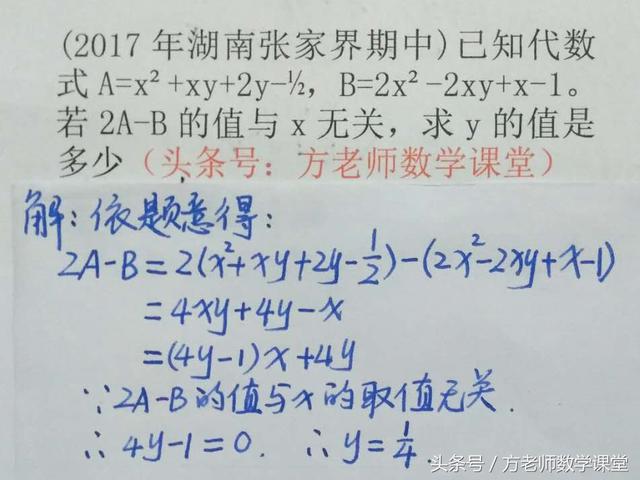 (2017年湖南张家界期中)已知代数
式A=x²+xy+2y-½，B=2x²-2xy+x-1。
若2A-B的值与x无关，求y的值是
多少（头条号：方老师数学课堂）
解：依题意得：
2A-B=2(x²+xy+2y-1/2)-(2x²-2xy+x-1)
=4xy+4y-x
=(4y-1)x+4y
∵2A-B的值与x的取值无关.
∴4y-1=0. ∴y=1/4.
头条号／方老师数学课堂